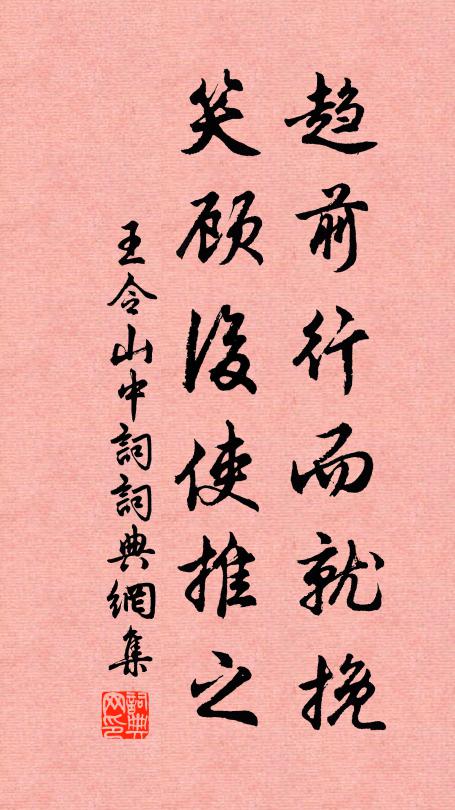 趋前行而就挽
笑顾後使推之
王令山中詞詞典網集
詞典网印